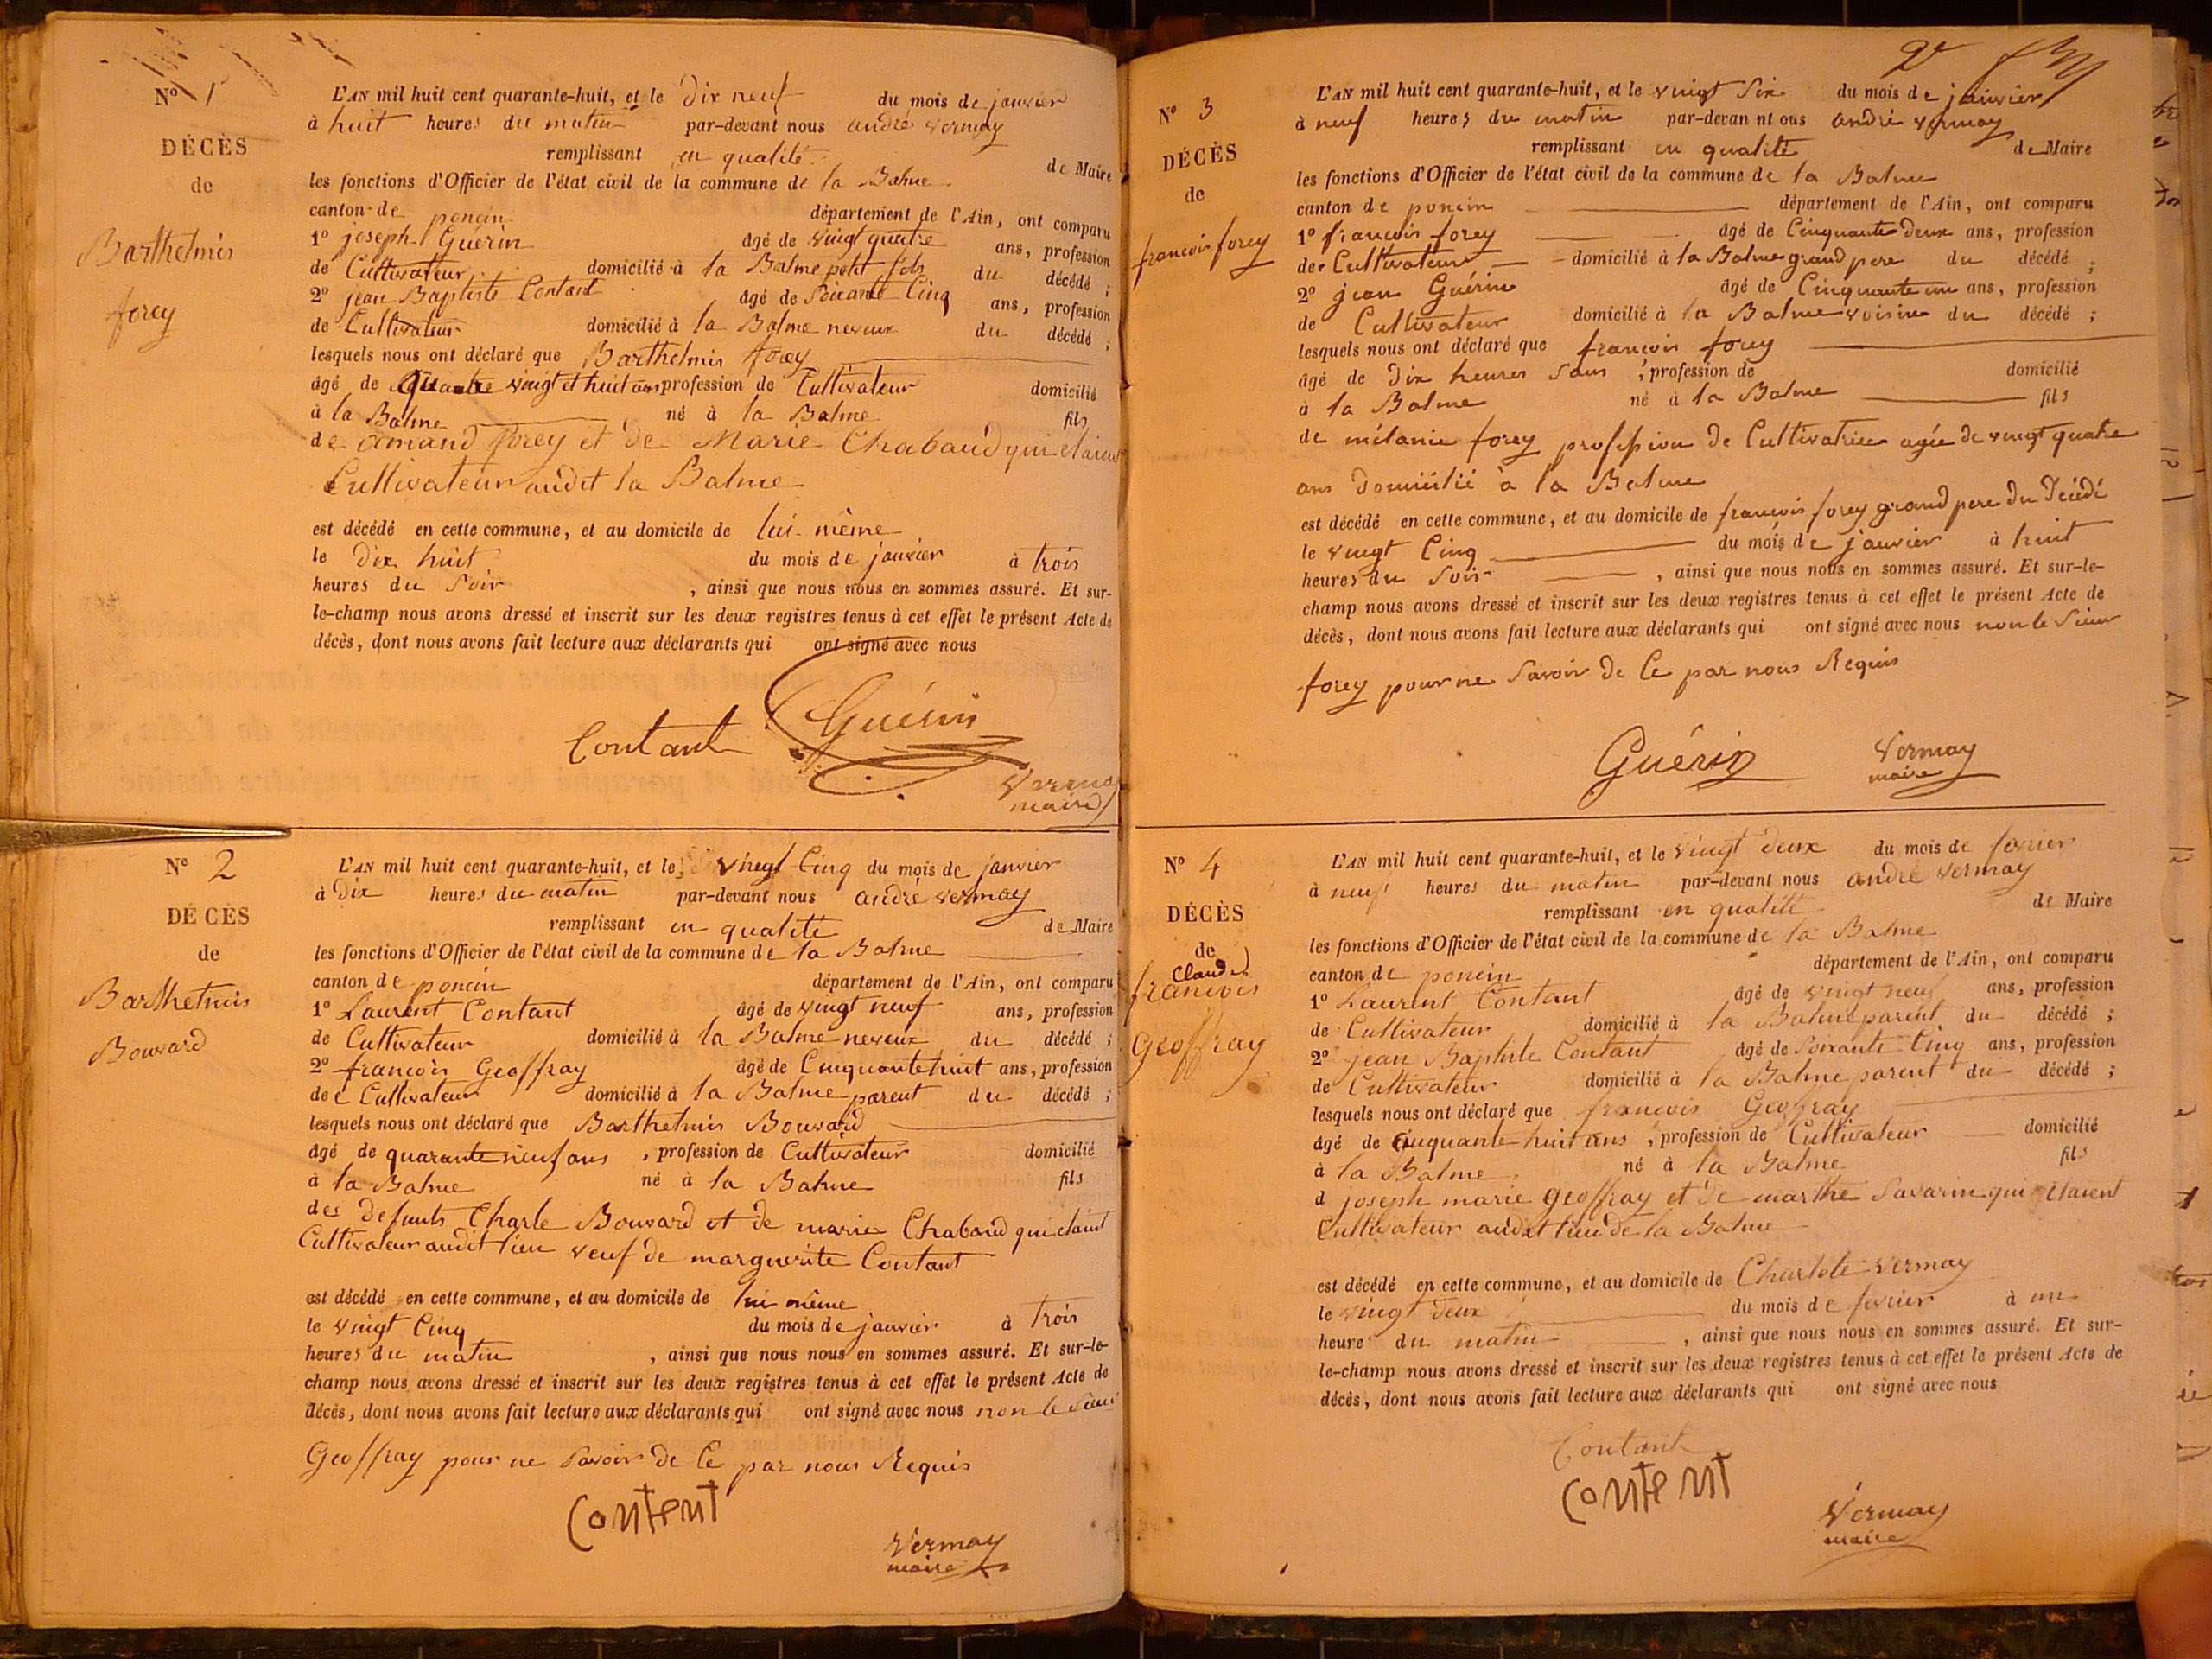 N° 1
DÉCÈS
de
Barthelmis
forey
L'AN mil huit cent quarante-huit, et le dix neuf du mois de janvier
à huit heures du matin par-devant nous andré vermay
remplissant en qualité de Maire
les fonctions d'Officier de l'état civil de la commune de la Balme
canton de poncin département de l'Ain, ont comparu
1° joseph Guérin âgé de vingt quatre ans, profession
de Cultivateur domicilié à la Balme petit fils du décédé ;
2° jean Baptiste Contant âgé de Soixante Cinq ans, profession
de Cultivateur domicilié à la Balme neveux du décédé ;
lesquels nous ont déclaré que Barthelmis forey
âgé de Quatre vingt et huit ans profession de Cultivateur domicilié
à la Balme né à la Balme fils
de amand forey et de Marie Chabaud qui etaient
Cultivateur audit la Balme
est décédé en cette commune, et au domicile de lui même
le dix huit du mois de janvier à trois
heures du Soir , ainsi que nous nous en sommes assuré. Et sur-
le-champ nous avons dressé et inscrit sur les deux registres tenus à cet effet le présent Acte de
décès, dont nous avons fait lecture aux déclarants qui ont signé avec nous
Contant Guérin
Vermay
maire
N° 2
DÉCÈS
de
Barthelmis
Bouvard
L'AN mil huit cent quarante-huit, et le vingt Cinq du mois de janvier
à dix heures du matin par-devant nous andré vermay
remplissant en qualité de Maire
les fonctions d'Officier de l'état civil de la commune de la Balme
canton de poncin département de l'Ain, ont comparu
1° Laurent Contant âgé de vingt neuf ans, profession
de Cultivateur domicilié à la Balme neveux du décédé ;
2° françois Geoffray âgé de Cinquante huit ans, profession
de Cultivateur domicilié à la Balme parent du décédé ;
lesquels nous ont déclaré que Barthelmis Bouvard
âgé de quarante neuf ans , profession de Cultivateur domicilié
à la Balme né à la Balme fils
des defunts Charle Bouvard et de marie Chabaud qui etaint
Cultivateur audit lieu veuf de marguerite Contant
est décédé en cette commune, et au domicile de lui même
le vingt Cinq du mois de janvier à trois
heures du matin , ainsi que nous nous en sommes assuré. Et sur-le-
champ nous avons dressé et inscrit sur les deux registres tenus à cet effet le présent Acte de
décès, dont nous avons fait lecture aux déclarants qui ont signé avec nous non le Sieur
Geoffray pour ne Savoir de Ce par nous Requis
Content
Vermay
maire
2e
N° 3
DÉCÈS
de
françois forey
L'AN mil huit cent quarante-huit, et le vingt Six du mois de janvier
à neuf heures du matin par-devan nt ous andré vermay
remplissant en qualité de Maire
les fonctions d'Officier de l'état civil de la commune de la Balme
canton de poncin département de l'Ain, ont comparu
1° françois forey âgé de Cinquante deux ans, profession
de Cultivateur domicilié à la Balme grand pere du décédé ;
2° jean Guérin âgé de Cinquante un ans, profession
de Cultivateur domicilié à la Balme voisin du décédé ;
lesquels nous ont déclaré que françois forey
âgé de dix heures Sans , profession de domicilié
à la Balme né à la Balme fils
de mélanie forey profession de Cultivatrice agée de vingt quatre
ans domicilié à la Balme
est décédé en cette commune, et au domicile de françois forey grand pere du décédé
le vingt Cinq du mois de janvier à huit
heures du Soir , ainsi que nous nous en sommes assuré. Et sur-le-
champ nous avons dressé et inscrit sur les deux registres tenus à cet effet le présent Acte de
décès, dont nous avons fait lecture aux déclarants qui ont signé avec nous non le Sieur
forey pour ne Savoir de Ce par nous Requis
Guérin Vermay
maire
N° 4
DÉCÈS
de
Claude
francois
Geoffray
L'AN mil huit cent quarante-huit, et le vingt deux du mois de fevrier
à neuf heures du matin par-devant nous andré vermay
remplissant en qualité de Maire
les fonctions d'Officier de l'état civil de la commune de la Balme
canton de poncin département de l'Ain, ont comparu
1° Laurent Contant âgé de vingt neuf ans, profession
de Cultivateur domicilié à la Balme parent du décédé ;
2° jean Baptiste Contant âgé de Soixante Cinq ans, profession
de Cultivateur domicilié à la Balme parent du décédé ;
lesquels nous ont déclaré que françois Geoffray
âgé de Cinquante huit ans , profession de Cultivateur domicilié
à la Balme né à la Balme fils
d joseph marie geoffray et de marthe Savarin qui etaient
Cultivateur audit lieu de la Balme
est décédé en cette commune, et au domicile de Charlote vermay
le vingt deux du mois de fevrier à un
heure du matin , ainsi que nous nous en sommes assuré. Et sur-
le-champ nous avons dressé et inscrit sur les deux registres tenus à cet effet le présent Acte de
décès, dont nous avons fait lecture aux déclarants qui ont signé avec nous
Contant
Content
Vermay
maire